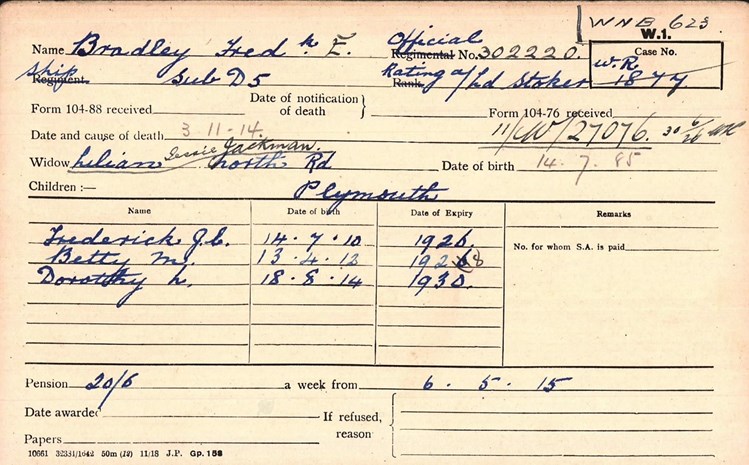 WNB 623
W.1.
Name Bradley Fredk E. Official Regimental No. 302220. Case No.
W.R 1877
Ship Regiment Sub D5 Rating a/Ld Stoker Rank
Form 104-88 received Date of notification of death } Form 104-76 received
Date and cause of death 3-11-14. 11/W/27076. 30/6/26
Jessie Jackman.
Widow Lilian North Rd Date of birth 14.7.85
Children :— Plymouth
Name Date of birth Date of Expiry Remarks
Frederick J.C. 14.7.10 1926.
Betty M. 13.4.12 1928 No. for whom S.A. is paid
Dorothy L. 18.8.14 1930.
Pension 20/6 a week from 6.5.15
Date awarded If refused,
Papers reason
10661 32331/1642 50m (19) 11/18 J.P. Gp. 158